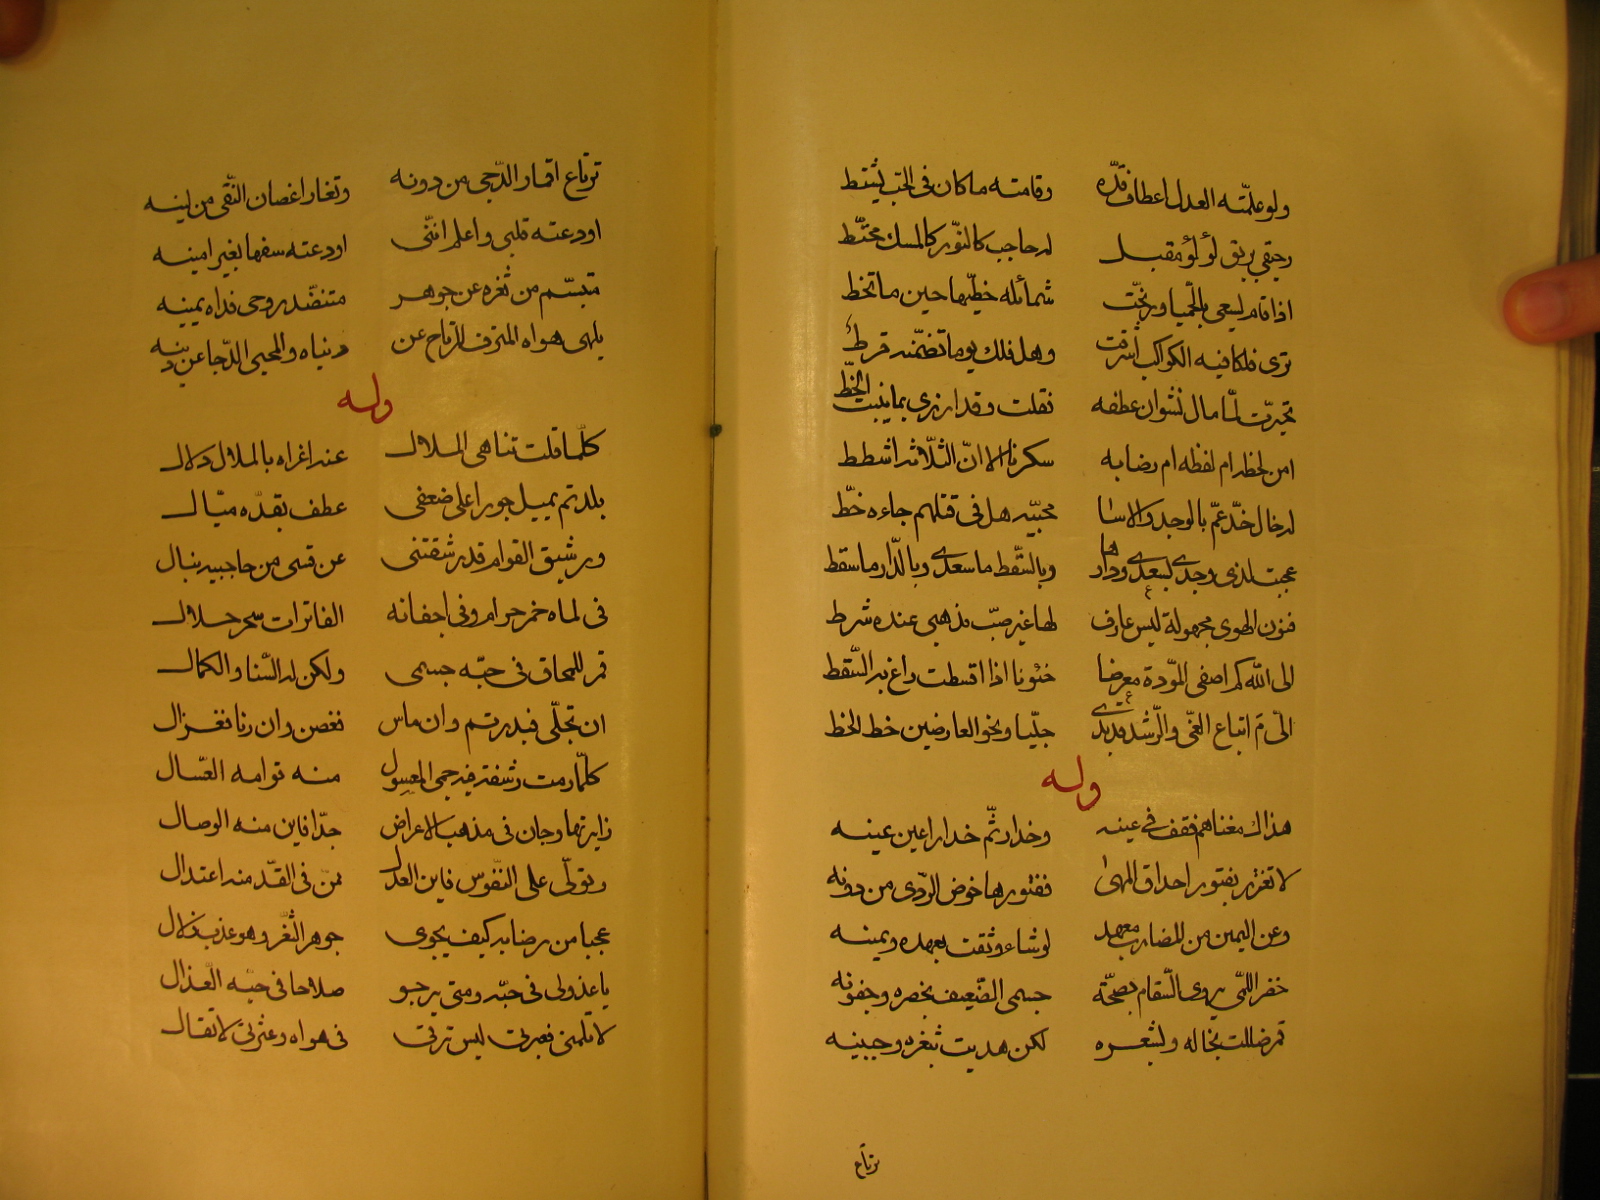 ولو علمته العدل اعطاف قدّه وقامته ما كان فى الحب يشتط
رحيقي بريق لؤلؤ مقبل له حاجب كالنّور كالمسك مختّط
اذا قام يسعى بالحميا ورنحّت شمائله خطيّها حين ما تخط
ترى فلكا فيه الكواكب اشرقت وهل فلك يوما تضمّنه قرط
تحيرّت لمّا مال نشوان عطفه نقلت وقد ازرى بما ينبت الخّط
امن لحظه ام لفظه ام رضا به سكرنا الا انّ الثلّاثه اشطط
له خال خدّ عمّ بالوجد والاسا محبيّه هل فى قتلهم جاءه خطّ
عجبت لذى وجدى لسعدى ودارها وبالسّقط ما سعدى وبالدّار ما سقط
فنون الهوى مجهولة ليس عارف لها غير صبّ مذهبى عنده شرط
الى الله كم اصفى المودّة معرضا خئونا اذا اقسطت داغ به السّقط
الىّ مَ اتباع الغىّ والرّشد قد بدى جليّا ونحو العارضين خط الخط
وله
هذاك مغناهم فقف فى عينه وحذار ثّم حذار اعين عينه
لا تغترر بفتور احداق المهىٰ ففتورها خوض الرّدى من دونه
وعن اليمين من المضارب معهد لو شاء وثقت بعهده ويمينه
خفر اللمّى يروى السّقام بصحّة جسمى الضّعيف بخصره وجفونه
قمر ضللت بخاله ولشعره لكن هديت بثغره وجبينه
ترتاع
ترتاع اقمار الدّجى من دونه وتغار اغصان النّقى من لينه
اودعته قلبى واعلم انّنى اودعته سفها بغير امينه
متبسّم من ثغره عن جوهر متنضّد روحى فداه يمينه
يلهى هواه المترف المرتاح عن دنياه والمحيى الدّجا عن دينه
وله
كلّما قلت تناهى الملال عند اغراه بالملال دلال
بلد تم يميل جورا على ضعفى عطف بقدّه ميّال
ورشيق القوام قد رشقتنى عن قسى من حاجبيه نبال
فى لماه خمر حرام وفى اجفانه الفاترات سحر حلال
قمر للمحاق فى حبّه جسمى ولكن له السّنا والكمال
ان تجلّى فبدر تم وان ماس فغصن وان رنا فغزال
كلّما رمت رشفة فيه حمى المعسول منه قوامه العسّال
زاير تها وجان فى مذهب الاعراض جدّا فاين منه الوصال
وتولّى على النفّوس فاين العدل ممّن فى القدّ منه اعتدال
عجبا من رضابه كيف يحوى جوهر الثّغر وهو عذب زلال
يا عذولى فى حبّه ومتى يرجو صلاحا فى حبّه العّذال
لا تلمنى فعبرتى ليس ترقى فى هواه وعثرتى لا تقال